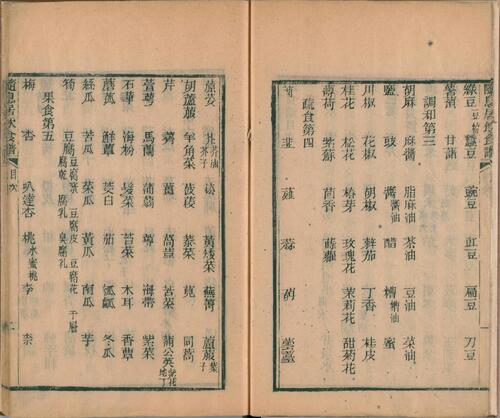 綠豆 豆粉 蠶豆 豌豆 豇豆 扁豆 刀豆
薯蕷 甘藷
調和第三
胡麻 麻醬 脂麻油 茶油 豆油 菜油
鹽 豉 醬 醬油 醋 糟 糟油 蜜
川椒 花椒 胡椒 辣茄 丁香 桂皮
桂花 松花 椿芽 玫瑰花 茉莉花 甜菊花
薄荷 紫蘇 茴香 蒔蘿
蔬食第四
韭 薤 葫 芸薹
芥 芥油 芥子 菘 黃矮菜 蕪菁 蘆菔 葉
胡蘆菔 羊角菜 菠薐 菾菜 莧 同蒿
芹 薺 薑 萵苣 苦菜 蒲公英 紫花地丁
萱萼 馬蘭 蒲蒻 蓴 海帶 紫菜
石華 海粉 髮菜 苔菜 木耳 香蕈
蘑菇 鮮蕈 茭白 茄 冬瓜
絲瓜 苦瓜 菜瓜 黃瓜 南瓜 芋
筍 豆腐漿 豆腐皮 豆腐花 千層 豆腐乾 腐乳 臭腐乳
果食第五
梅 杏 叭達杏 桃 水蜜桃 李 柰
隨息居飲食譜 目次 二